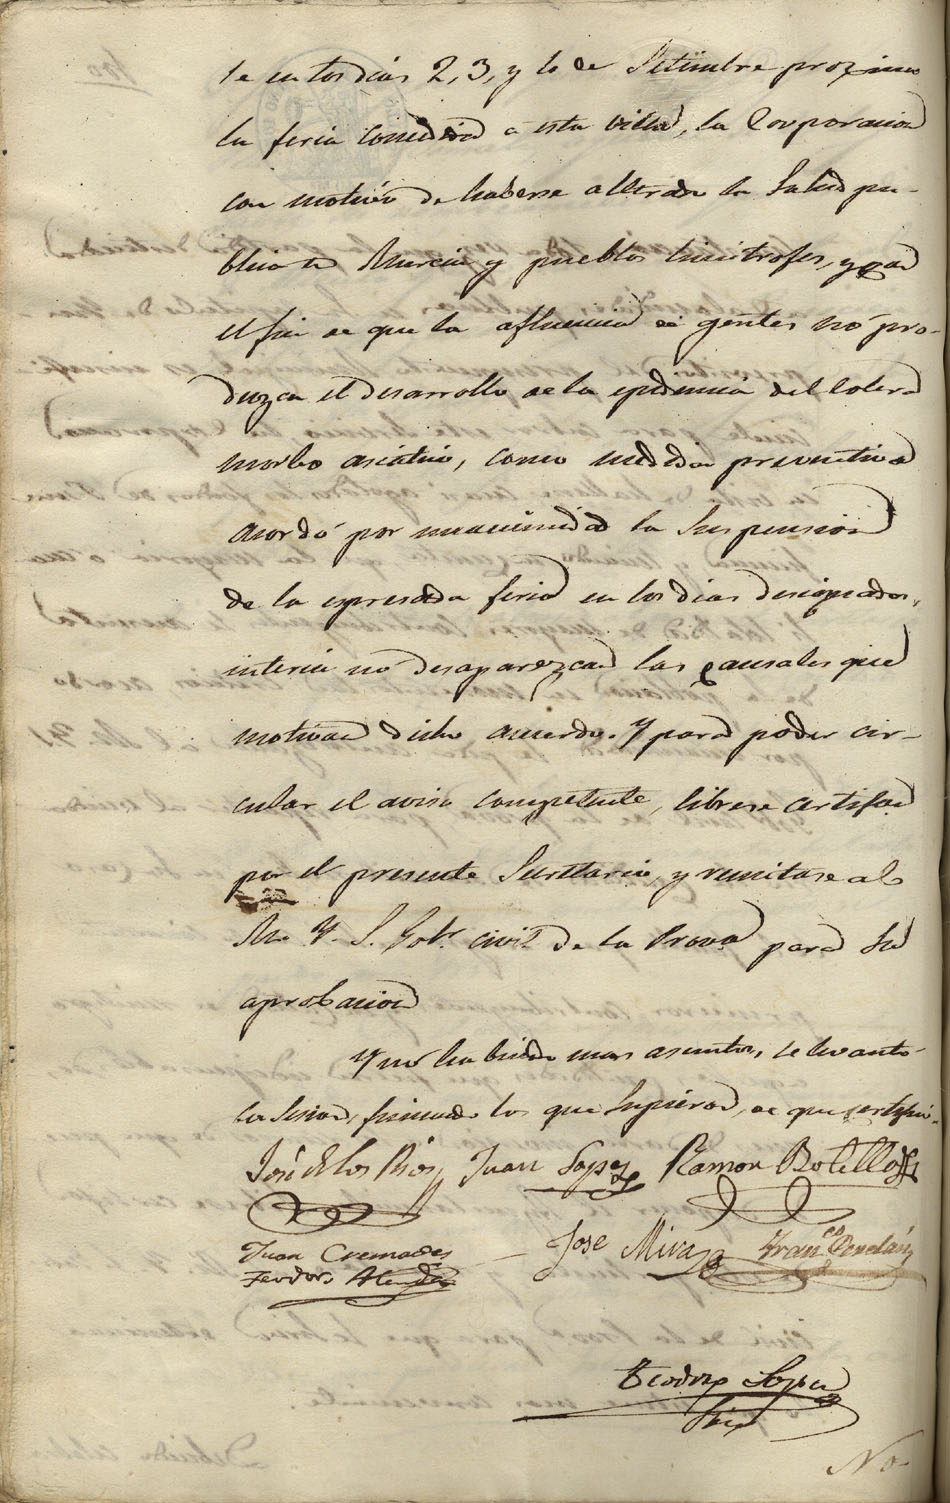 se en los dias 2, 3, y 4 de Setiembre proximo
la feria concedida á esta villa, la Corporacion
con motivo de haberse alterado la Salud pu-
blica en Murcia y pueblos limitrofes, y con
el fin de que la afluencia de gentes nó pro-
duzca el desarrollo de la epidemia del Colera
morbo asiatico, como medida preventiva
acordó por unanimidad la Suspension
de la expresada feria en los dias designados,
interin nó desaparezcan las causales que
motivan dicho acuerdo. Y para poder cir-
cular el aviso competente, librese certifon
por el presente Secretario, y remitase al
M. Y. S. Gobr. civil de la Prova para su
aprobacion
Y no habiendo mas asuntos, se levantó
la Sesion, firmando los que Supieron, de que certifico.
José de los Rios Juan Lopez Ramon Botella
Juan Cremades José Mira Franco Penalva
Teodoro Alenda
Teodoro Lopez
Srio
No-